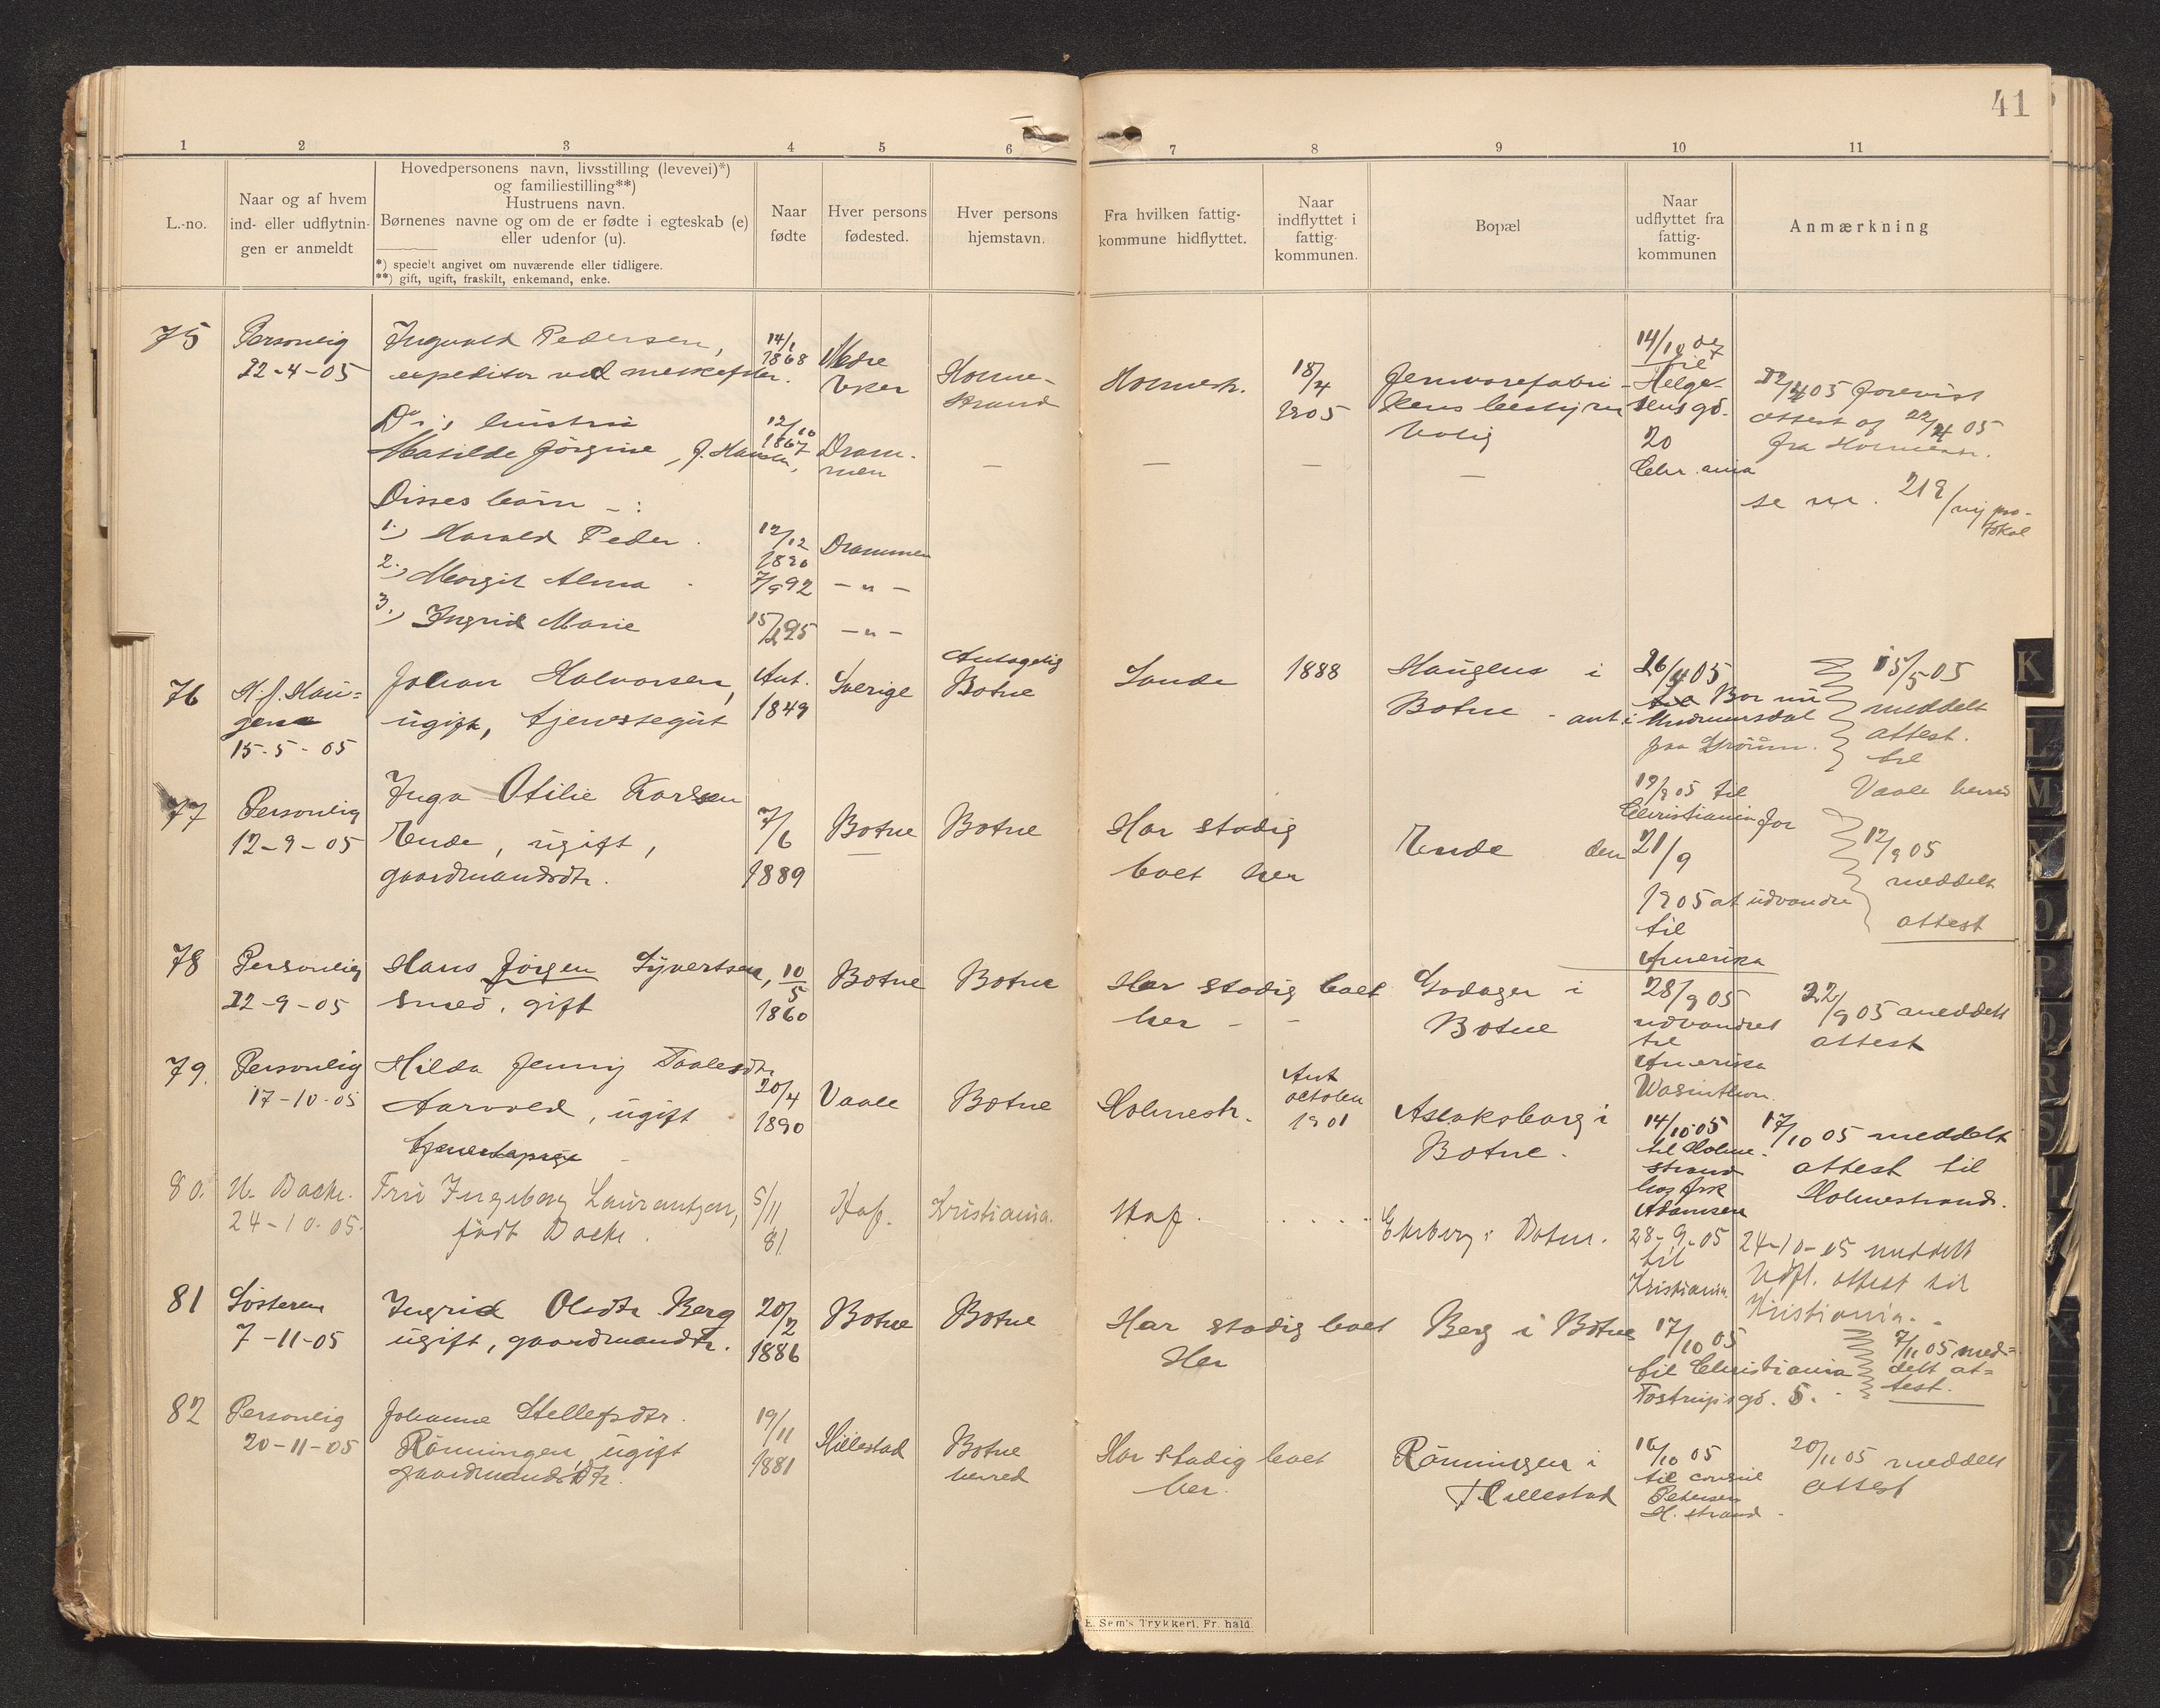 41
1 2 3 4 5 6 7 8 9 10 11
L.-no.
Naar og af hvem
ind- eller udflytnin-
gen er anmeldt
Hovedpersonens navn, livsstilling (levevei)*)
og familiestilling**)
Hustruens navn.
Børnenes navne og om de er fødte i egteskab (e)
eller udenfor (u).
*) specielt angivet om nuværende eller tidligere.
**) gift, ugift, fraskilt, enkemand, enke.
Naar
fødte
Hver persons
fødested.
Hver persons
hjemstavn.
Fra hvilken fattig-
kommune hidflyttet.
Naar
indflyttet i
fattig-
kommunen.
Bopæl
Naar
udflyttet fra
fattig-
kommunen
Anmærkning
75
Personlig
22-4-05
Ingvald Pedersen,
expeditør ved
14/1
1868
Nedre
Eker
Holme-
strand
Holmestr.
18/4
1905
Jernvarefabri-
kens bestyrer
bolig
14/10 07
til
Helge-
sens gd.
20
Chr.ania
22/4 05 forevist
attest af 22/4 05
fra Holmestr.
se nr. 218/ny pro-
tokol
Do's hustru
Matilde Jørgine, f. Hansen,
12/10
1867
Dram-
men
— — — —
Disses børn -:
1.) Harald Peder.
12/12
1890
Drammen
2.) Margit Alma
7/9 92
- " -
3.) Ingrid Marie
15/ 95
- " -
76
H. J. Hau-
gene
15-5-05
Johan Halvorsen,
ugift, tjenstegut
Ant.
1849
Sverige
Antagelig
Botne
Sande
1888
Haugene i
Botne
26/4 05
til Bor nu
ant. i Undrumsdal
paa
15/5-05
meddelt
attest.
til
Vaale herred
77
Personlig
12-9-05
Inga Otilie Karlsen
Rende, ugift,
gaardmandsdtr.
7/6
1889
Botne
Botne
Har stadig
boet her
Rende
12/9 05 til
Christiania for
den 21/9
1905 at udvandre
til
Amerika
12/9 05
meddelt
attest
78
Personlig
22-9-05
Hans Jørgen Syvertsen,
smed, gift
10/5
1860
Botne
Botne
Har stadig boet
her -
Solager i
Botne
28/9 05
udvandret
til
Amerika
Wasinthon.
22/9 05 meddelt
attest
79.
Personlig
17-10-05
Hilda Jenny Paalesdtr
Aarvold, ugift
tjenestepige
20/4
1890
Vaale
Botne
Holmestr.
Ant
october
1901
Aslaksborg i
Botne.
14/10 05
til Holme-
strand
hos frk
Adamsen
17/10 05 meddelt
attest til
Holmestrand.
80.
N. Backe.
24-10-05.
Fru Ingeborg Laurantzon,
født Backe.
5/11
81
Hof.
Kristiania.
Hof.
. . . .
Ekeberg i Botne.
28-9-05
til
Kristiania
24-10-05 meddelt
Udfl. attest til
Kristiania.
81
Søsteren
7-11-05
Ingrid Olsdtr Berg
ugift, gaardmandtr.
20/2
1886
Botne
Botne
Har stadig boet
Her
Berg i Botne
17/10 05
til Christiania
Tostrupsgd. 5.
7/11 05 med-
delt at-
test.
82
Personlig
20-11-05
Johanne Stellefsdtr.
Rønningen, ugift
gaardmandsdtr.
19/11
1881
Hillestad
Botne
herred
Har stadig boet
her.
Rønningen i
Hillestad
16/10 05
til consul
Petersen
H. strand
20/11 05 meddelt
attest
E. Sem's Trykkeri, Fr.hald
K
L
M
N
O
P
Q
R
S
T